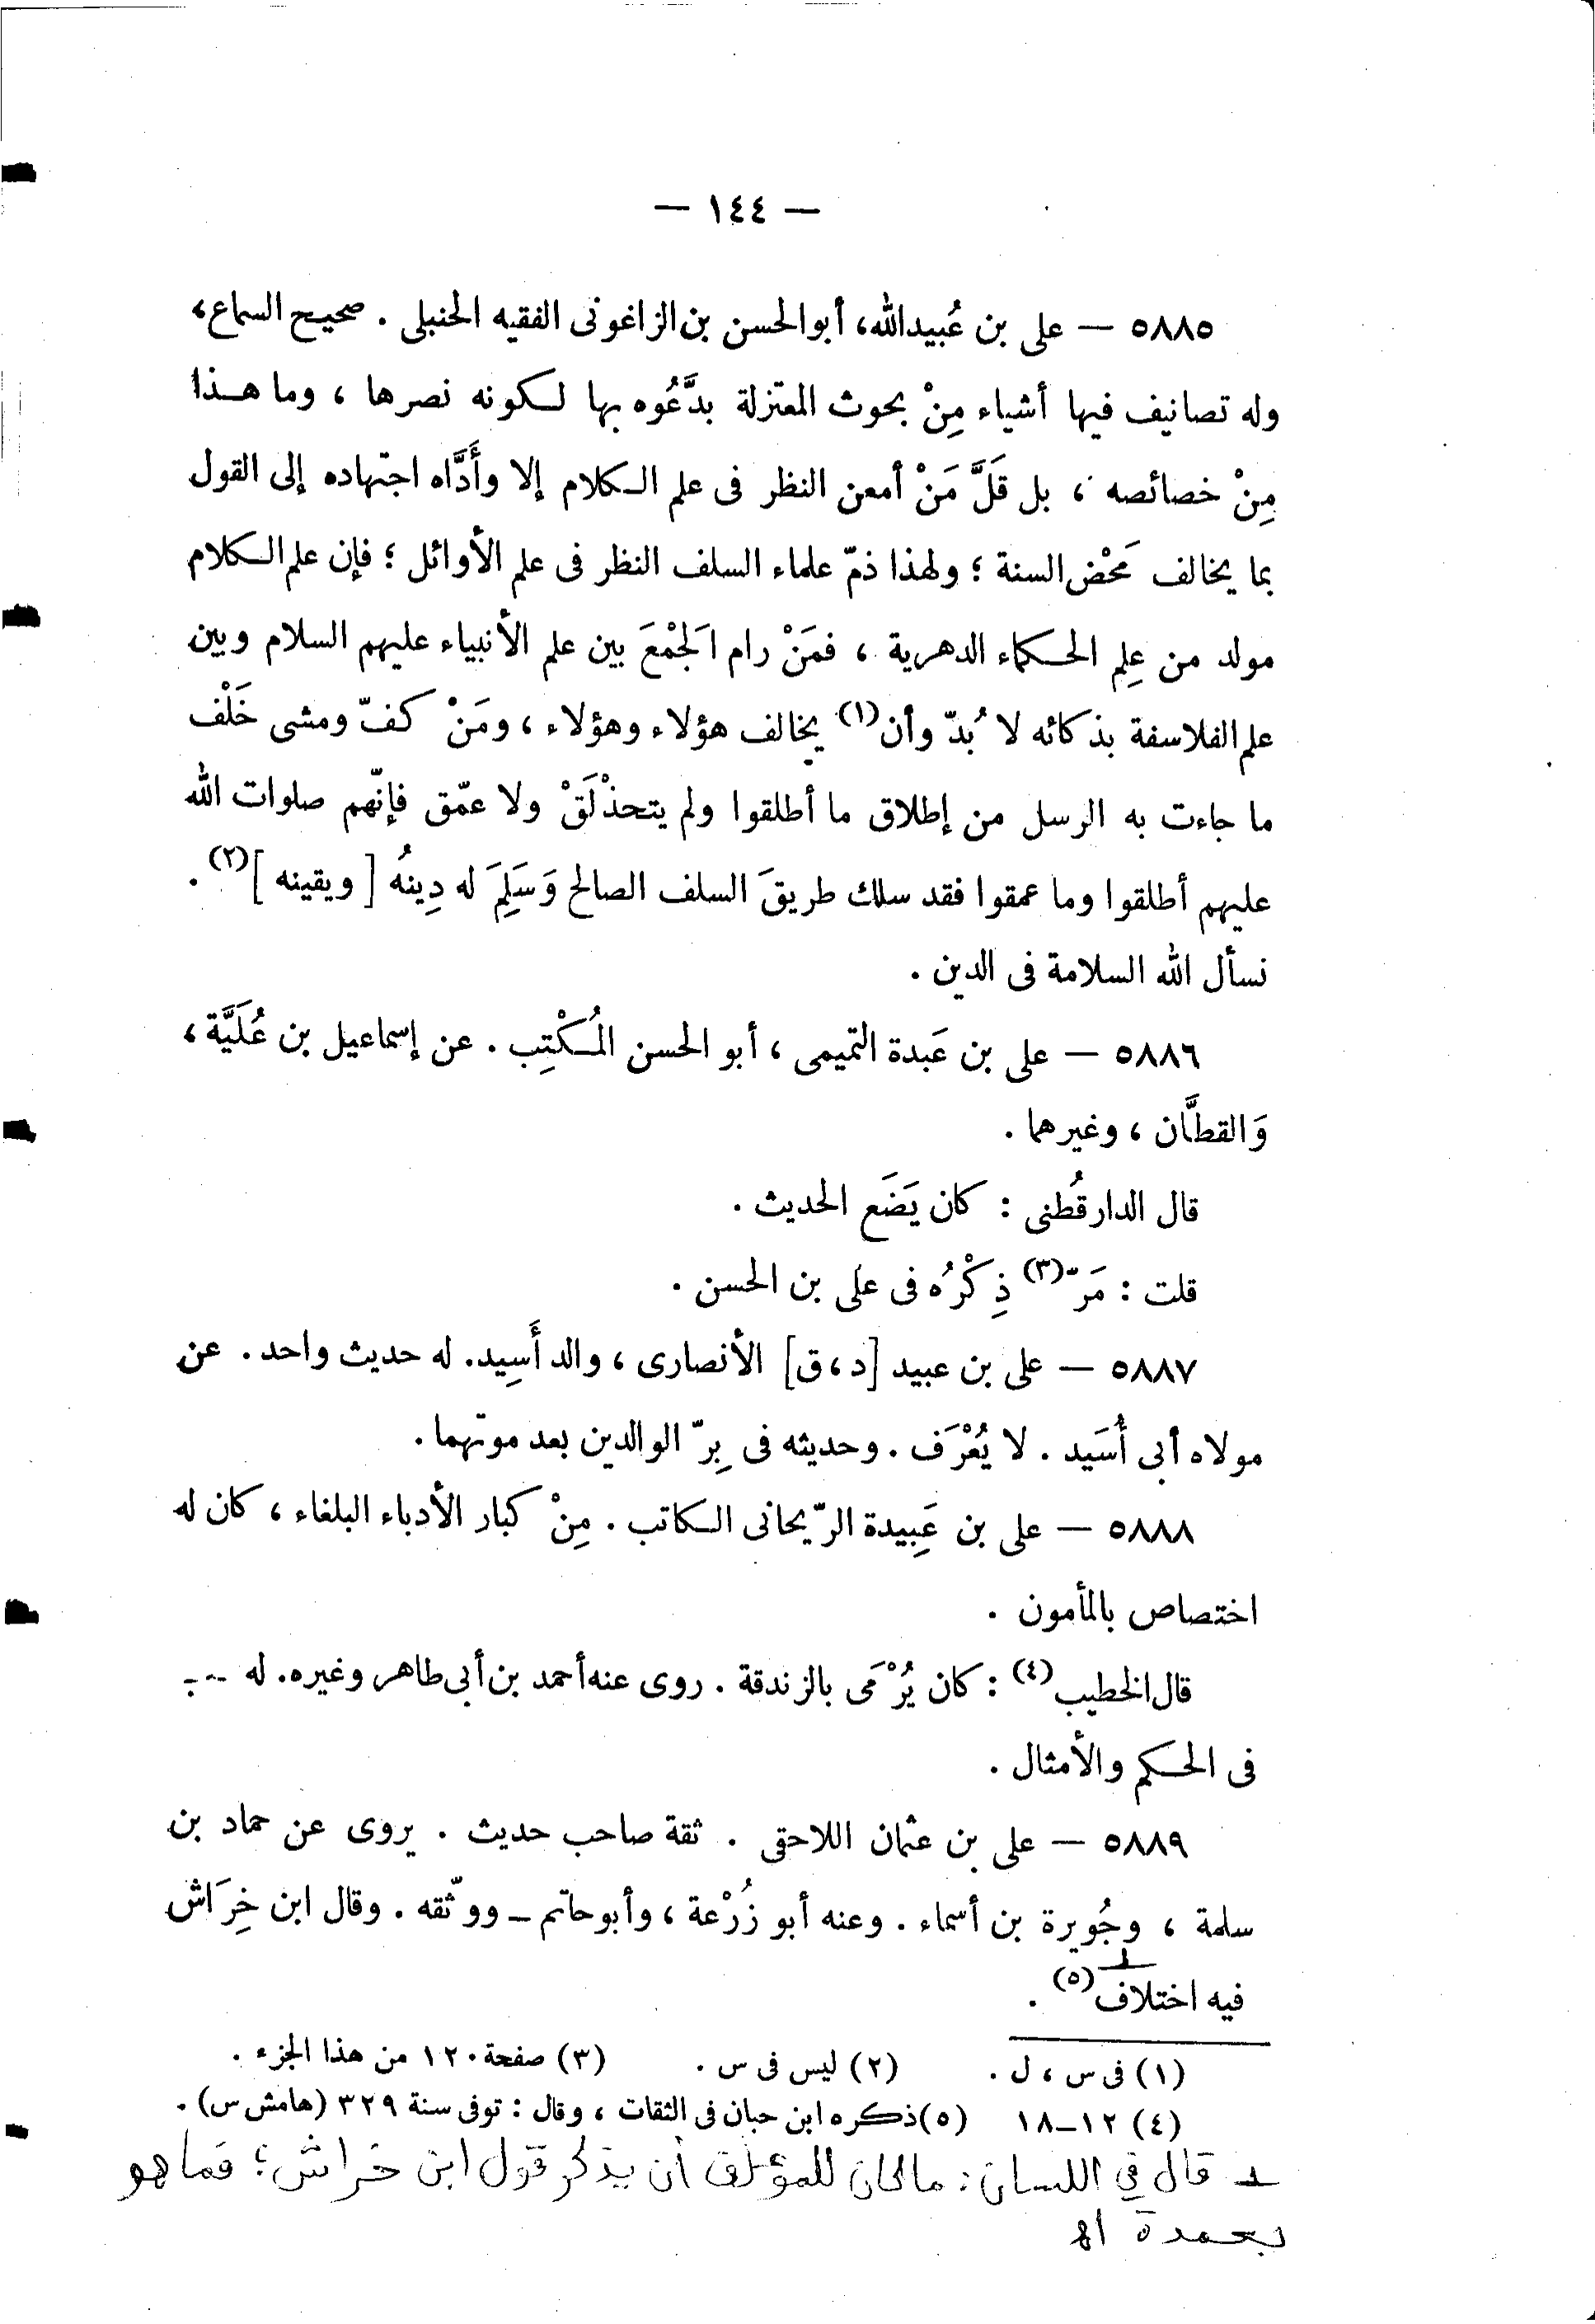 — ١٤٤ —
٥٨٨٥ — على بن عُبيد الله، أبو الحسن بن الزاغونى الفقيه الحنبلى . صحيح السماع،
وله تصانيف فيها أشياء مِنْ بحوث المعتزلة بدَّعُوه بها لكونه نصرها ، وما هذا
مِنْ خصائصه ، بل قَلَّ مَنْ أمعن النظر فى علم الكلام إلا وأَدَّاه اجتهاده إلى القول
بما يخالف مَحْض السنة ؛ ولهذا ذمّ علماء السلف النظر فى علم الأوائل ؛ فإن علم الكلام
مولد من عِلم الحكماء الدهرية ، فمَنْ رام الَجْمْعَ بين علم الأنبياء عليهم السلام وبين
علم الفلاسفة بذكائه لا بُدّ وأن(١) يخالف هؤلاء وهؤلاء ، ومَنْ كفّ ومشى خَلْف
ما جاءت به الرسل من إطلاق ما أطلقوا ولم يتحذْلَقْ ولا عمّق فإنّهم صلوات الله
عليهم أطلقوا وما عمقوا فقد سلك طريقَ السلف الصالح وَسَلِمَ له دِينهُ [ ويقينه ](٢) .
نسأل الله السلامة فى الدين .
٥٨٨٦ — على بن عَبدة التميمى ، أبو الحسن المُكْتِب . عن إسماعيل بن عُلَيَّة ،
وَالقطَّان ، وغيرهما .
قال الدارقُطنى : كان يَضَع الحديث .
قلت : مَرّ(٣) ذِكْرُه فى على بن الحسن .
٥٨٨٧ — على بن عبيد [د ، ق] الأنصارى ، والد أَسِيد. له حديث واحد . عن
مولاه أبى أُسَيد . لا يُعْرَف . وحديثه فى بِرّ الوالدين بعد موتهما .
٥٨٨٨ — على بن عَبِيدة الرّيحانى الكاتب . مِنْ كبار الأدباء البلغاء ، كان له
اختصاص بالمأمون .
قال الخطيب(٤) : كان يُرْمَى بالزندقة . روى عنه أحمد بن أبى طاهر وغيره. له
فى الحكم والأمثال .
٥٨٨٩ — على بن عثمان اللاحقى . ثقة صاحب حديث . يروى عن حماد بن
سلمة ، وجُويرة بن أسماء . وعنه أبو زُرْعة ، وأبو حاتم ــ ووثّقه . وقال ابن خِرَاش
فيه اختلاف(٥) .
(١) فى س ، ل . (٢) ليس فى س . (٣) صفحة ١٢٠ من هذا الجزء .
(٤) ١٢ــ١٨ (٥) ذكره ابن حبان فى الثقات ، وقال : توفى سنة ٣٢٩ (هامش س) .
قال في اللسان : ما كان للمؤلف أن يذكر قول ابن خراش ؛ فما هو
بعمدة اهـ